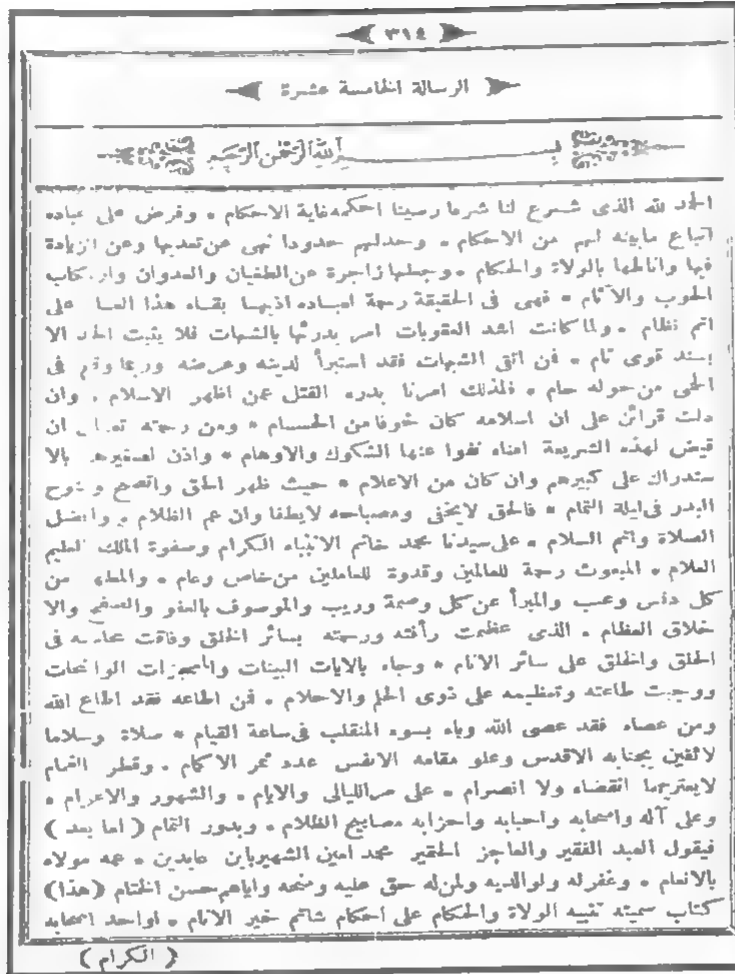 ﴿ ٣١٤ ﴾
﴿ الرسالة الخامسة عشرة ﴾
بسم الله الرحمن الرحيم
الحمد لله الذى شـرع لنا شرعا رصينا احكمه غاية الاحكام • وفرض على عباده
اتباع مابينه لهم من الاحكام • وحدلهم حدودا نهى عن تعديها وعن الزيادة
فيها واناطها بالولاة والحكام • وجعلها زاجرة عن الطغيان والعدوان وارتكاب
الحوب والآثام • فهى فى الحقيقة رحمة لعباده اذبهـا بقـاء هذا العـالم على
اتم نظام • ولما كانت اشد العقوبات امر بدرئها بالشبهات فلا يثبت الحد الا
بسند قوى تام • فن اتق الشبهات فقد استبرأ لدينه وعرضه وربما وقع فى
الحمى من حوله حام • فلذلك امرنا بدرء القتل عمن اظهر الاسلام • وان
دلت قرائن على ان اسلامه كان خوفا من الحسـام • ومن رحمته تعالى ان
قيض لهذه الشريعة امناء نفوا عنها الشكوك والاوهام • واذن لصغيرهم بالا
ستدراك على كبيرهم وان كان من الاعلام • حيث ظهر الحق واتضح وضوح
البدر فى ليلة التمام • فالحق لايخفى ومصباحه لايطفا وان عم الظلام • وافضل
الصلاة واتم السلام • على سيدنا محمد خاتم الانبياء الكرام وصفوة الملك العليم
العلام • المبعوث رحمة للعالمين وقدوة للعاملين من خاص وعام • والمطهر من
كل دنس وعيب والمبرأ عن كل وصمة وريب والموصوف بالعفو والصفح والا
خلاق العظام • الذى عظمت رأفته ورحمته بسائر الخلق وفاقت محاسنه فى
الخلق والخلق على سائر الانام • وجاء بالايات البينات والمعجزات الواضحات
ووجبت طاعته وتعظيمه على ذوى الحلم والاحلام • فن اطاعه فقد اطاع الله
ومن عصاه فقد عصى الله وباء بسوء المنقلب فى ساعة القيام • صلاة وسلاما
لائقين بجنابه الاقدس وعلو مقامه الانفس عدد ثمر الاكمام • وقطر الغمام
لايعتريهما انقضاء ولا انصرام • على مر الليالى والايام • والشهور والاعوام •
وعلى آله واصحابه واحبابه واحزابه مصابيح الظلام • وبدور التمام ( اما بعد )
فيقول العبد الفقير والعاجز الحقير محمد امين الشهير بابن عابدين • عمه مولاه
بالانعام • وغفر له ولوالديه ولمن له حق عليه ومنحه واياهم حسن الختام ( هذا )
كتاب سميته تنبيه الولاة والحكام على احكام شاتم خير الانام • او احد اصحابه
( الكرام )